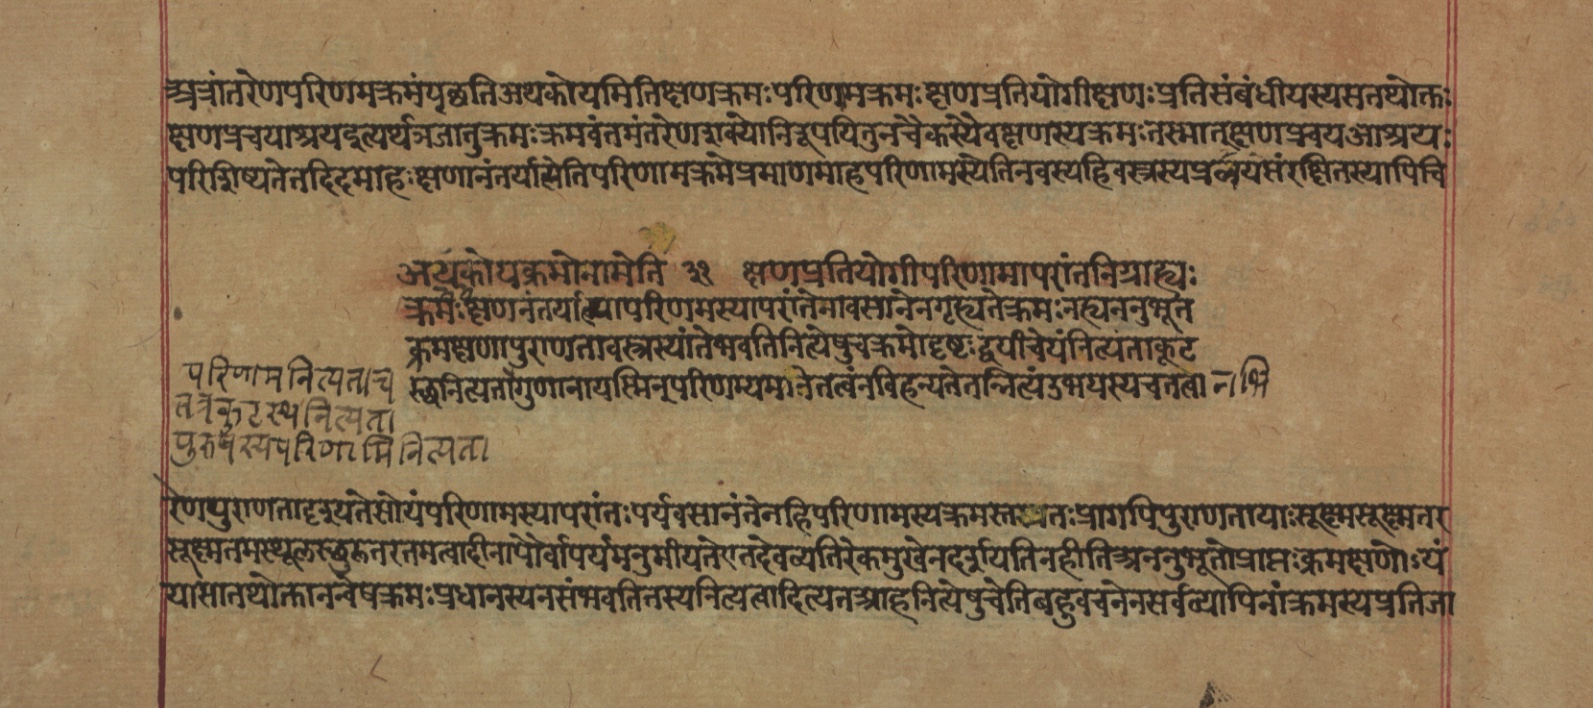 अत्रांतरेणपरिणमक्रमंपृछतिअथकोयमितिक्षणक्रमःपरिणमक्रमःक्षणप्रतियोगीक्षणःप्रतिसंबंधीयस्यसतथोक्तः
क्षणप्रचयाश्रयइत्यर्थनजातुक्रमःक्रमवंतमंतरेणशक्योनिरूपयितुनचैकस्यैवक्षणस्यक्रमःतस्मात्क्षणप्रचयआश्रयः
परिशिष्यतेतदिदमाहःक्षणानंतर्यात्मेतिपरिणामक्रमेप्रमाणमाहपरिणामस्येतिनवस्यहिवस्त्रस्यप्रयत्नसंरक्षितस्यापिचि
अथकोयक्रमोनामेति ३२ क्षणप्रतियोगीपरिणामापरांतनिग्राह्यः
क्रमःक्षणनंतर्यात्मापरिणमस्यापरांतेनावसानेनगृह्यतेक्रमःनह्यननुभूत
क्रमक्षणापुराणतावस्त्रस्यांतेभवतिनित्येषुचक्रमोदृष्टःद्वयीचेयंनित्यताकूट
परिणामनित्यताच
स्छनित्यतागुणानायस्मिन्परिणम्यमानेतत्वंनविहन्यतेतन्नित्यंउभयस्यचतत्वा नभि
तत्रकुटस्थनित्यता
पुरुषस्यपरिणामिनित्यता
रेणपुराणतादृश्यतेसोयंपरिणामस्यापरांतःपर्यवसानंतेनहिपरिणामस्यक्रमस्ततःप्रागपिपुराणतायाःसूक्ष्मसूक्ष्मतर
सूक्ष्मतमस्थूलस्छुलतरतमत्वादीनापौर्वापर्यमनुमीयतेएतदेवव्यतिरेकमुखेनदर्शयतिनहीतिअननुभूतोप्राप्तःक्रमक्षणोऽयं
यासातथोक्ताननवेषक्रमःप्रधानस्यनसंभवतितस्यनित्यत्वादित्यतआहनित्येषुचेतिबहुवचनेनसर्वव्यापिनांक्रमस्यप्रतिजा